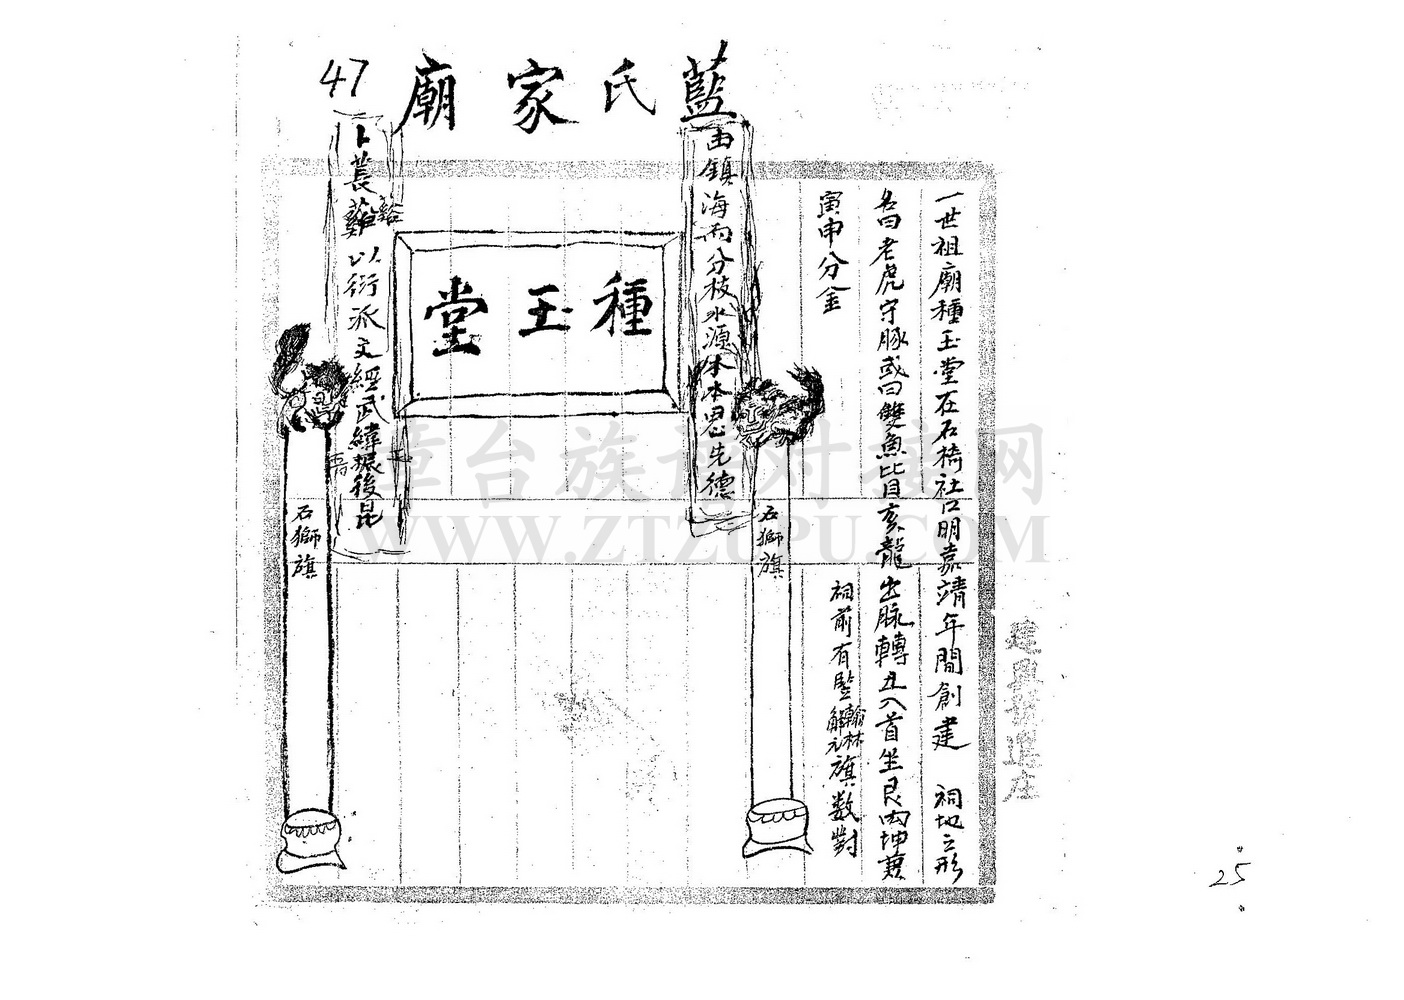 藍氏家廟
47
一世祖廟種玉堂在石椅社口明嘉靖年間創建 祠地之形
名曰老虎守豚或曰雙魚比目亥龍出脉轉丑入首坐艮向坤兼
寅申分金
祠前有監翰林解元旗数對
由鎮海而分枝水源木本思先德
種玉堂
卜萇谿以衍派文經武緯振後昆
谿
石獅旗
石獅旗
章台族谱对接网
WWW.ZTZUPU.COM
25